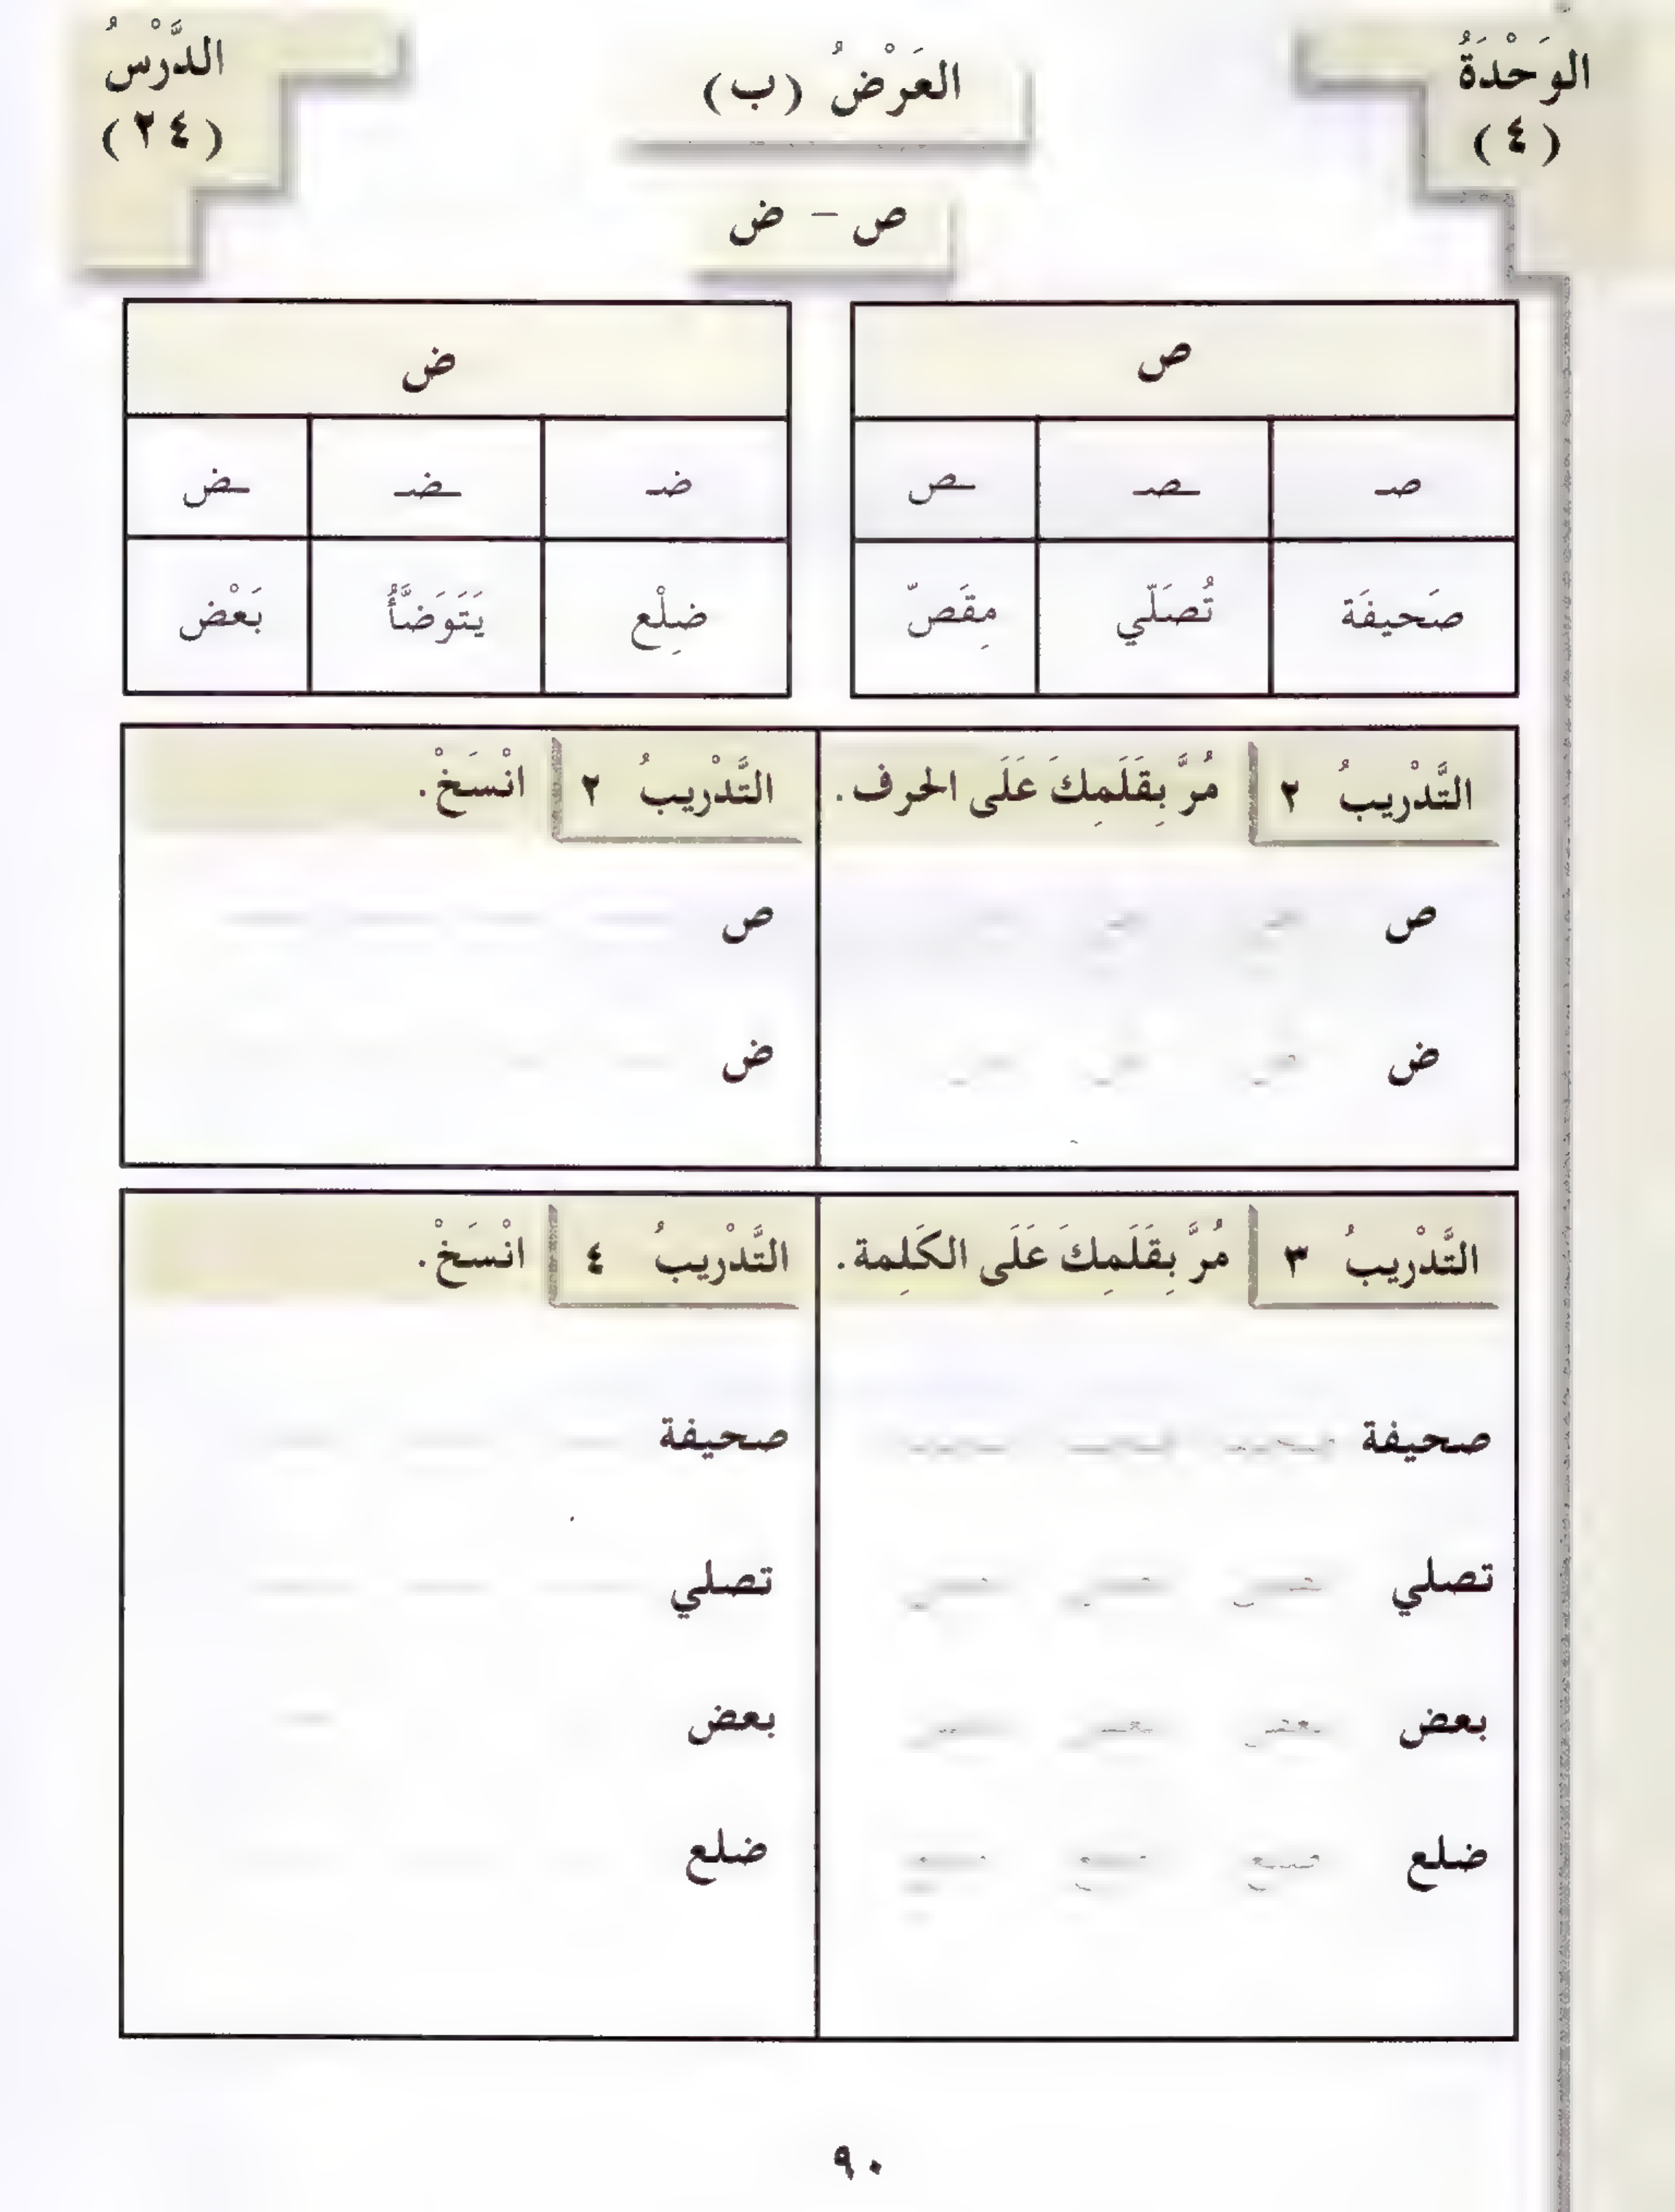 الوَحْدَةُ
(٤)
العَرْضُ (ب)
الدَّرْسُ
(٢٤)
ص - ض
ص
صـ ـصـ ـص
صَحيفَة تُصَلّي مِقَصّ
ض
ضـ ـضـ ـض
ضِلْع يَتَوَضَّأُ بَعْض
التَّدْريبُ ٢ مُرَّ بِقَلَمِكَ عَلَى الحرف.
ص
ض
التَّدْريبُ ٢ انْسَخْ.
ص
ض
التَّدْريبُ ٣ مُرَّ بِقَلَمِكَ عَلَى الكَلِمة.
صحيفة
تصلي
بعض
ضلع
التَّدْريبُ ٤ انْسَخْ.
صحيفة
تصلي
بعض
ضلع
٩٠